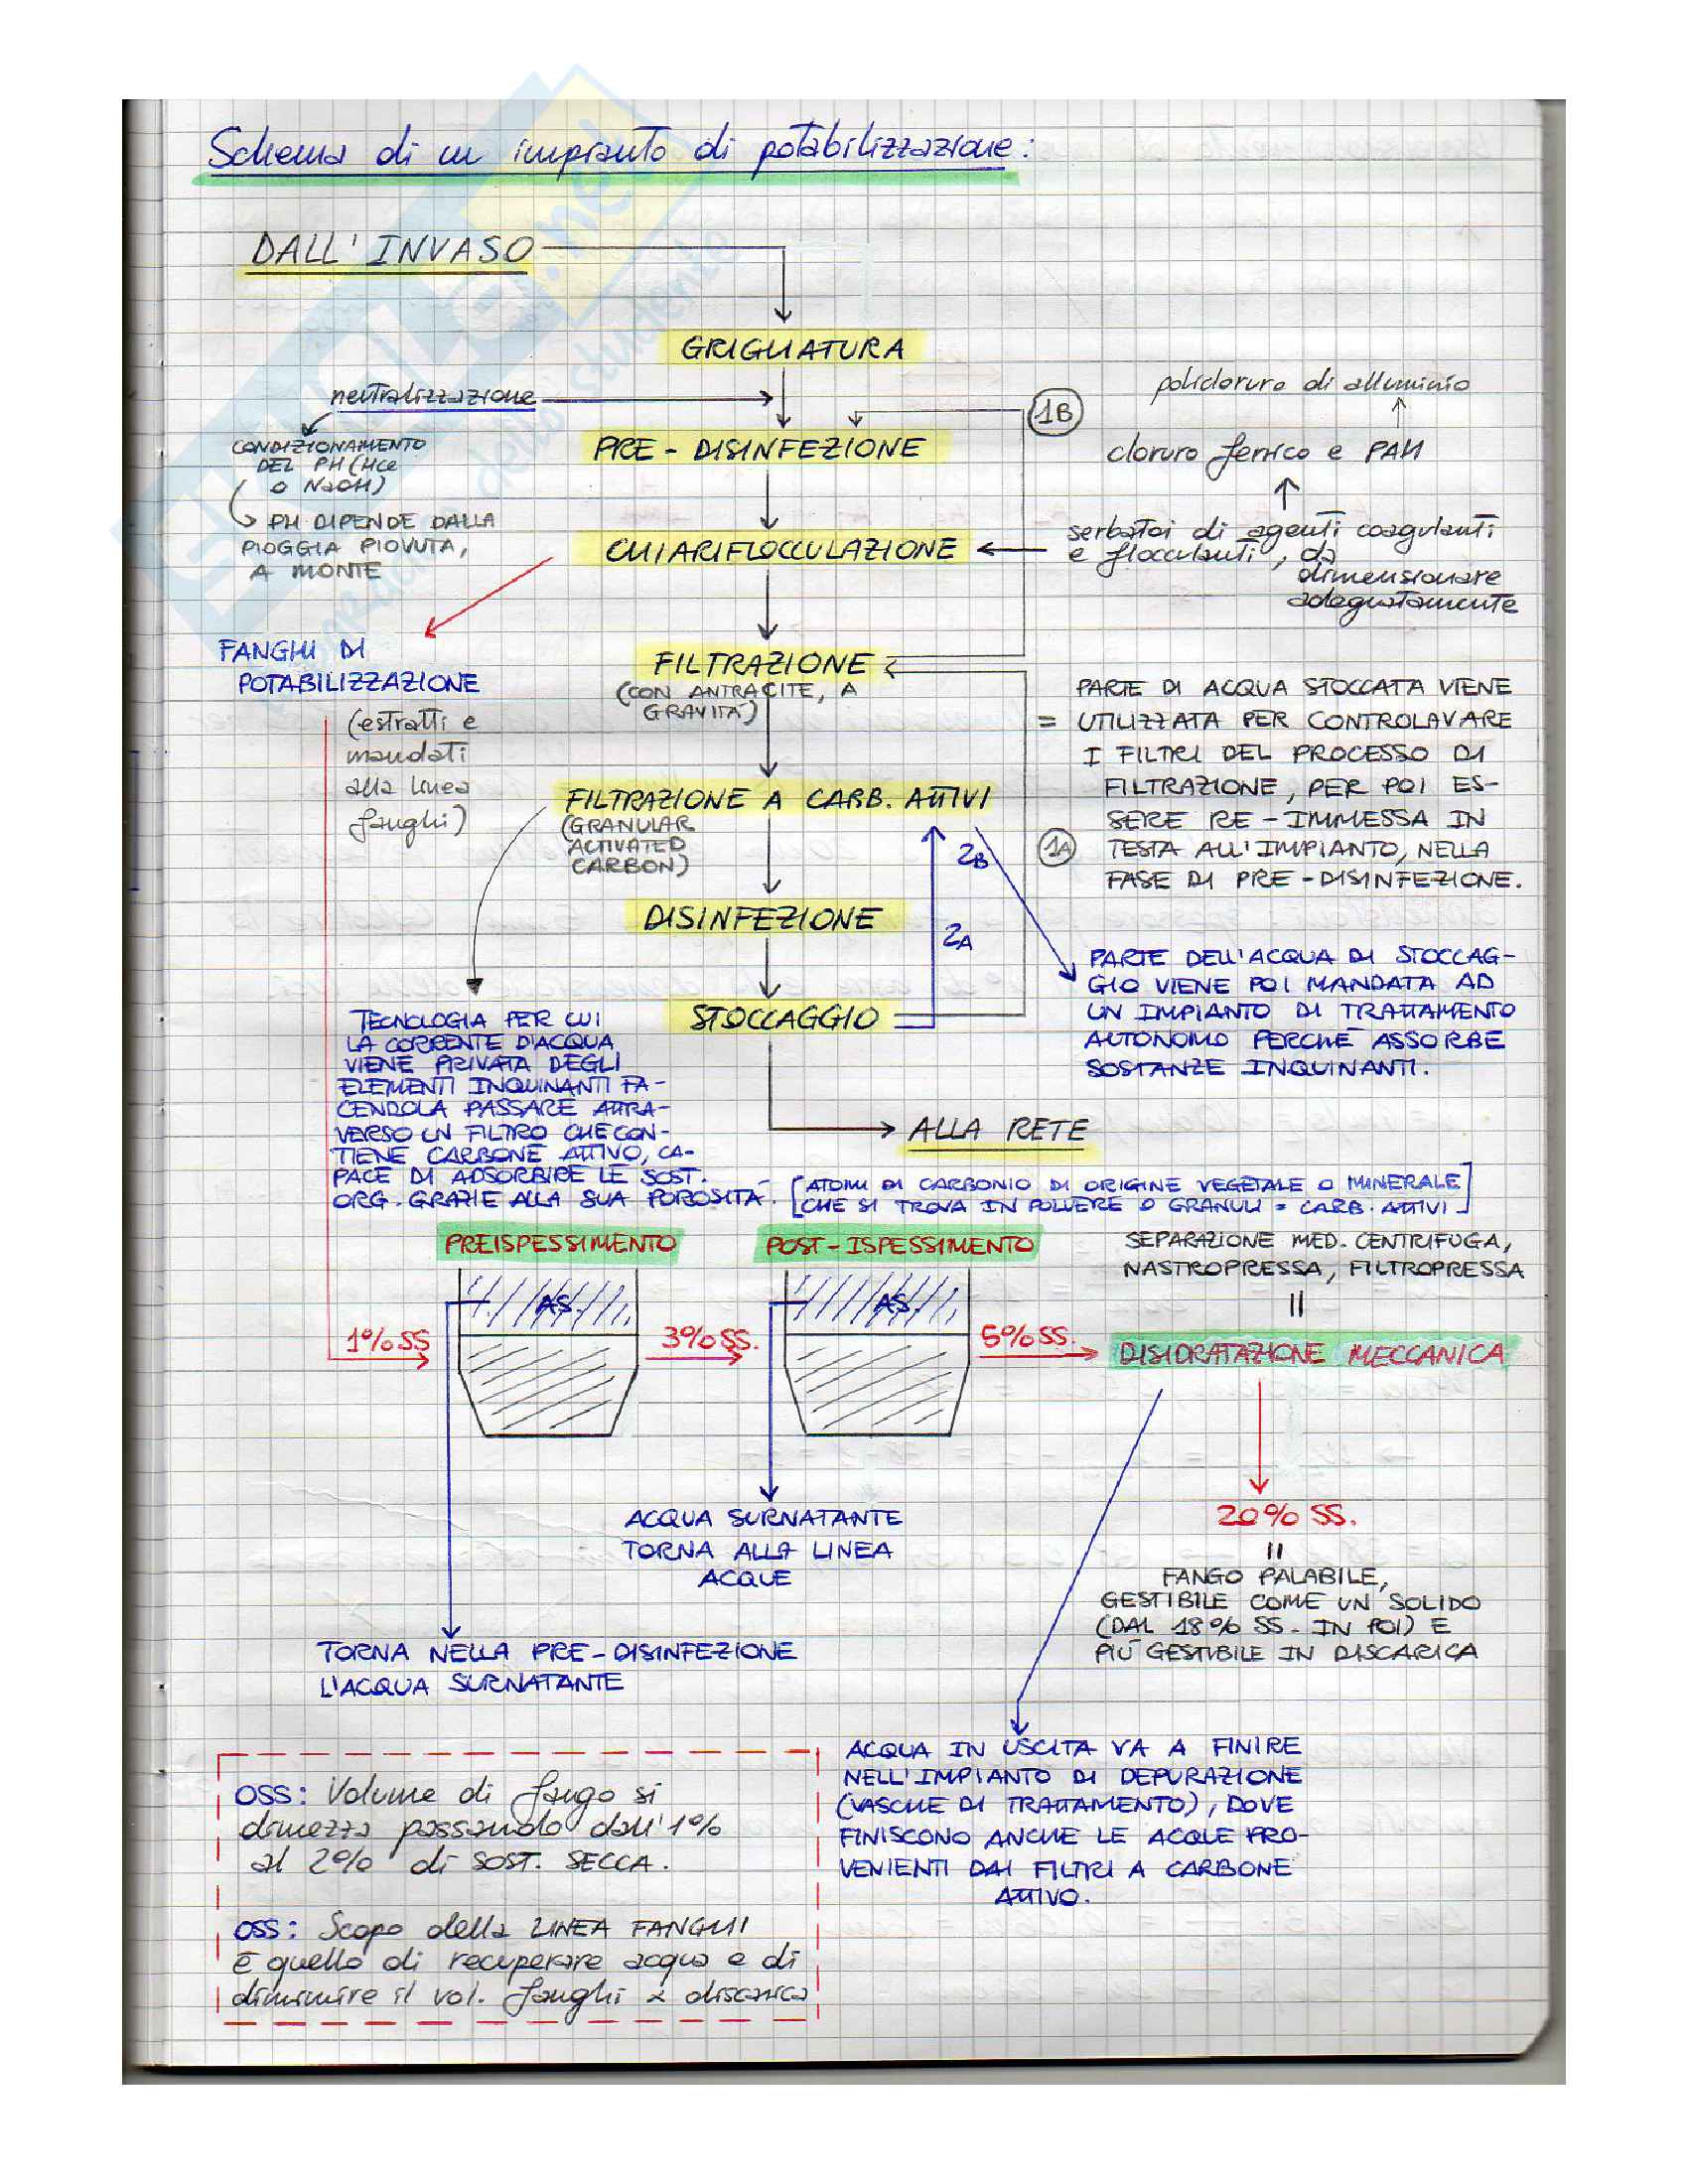 Schema di un impianto di potabilizzazione:
DALL'INVASO
GRIGLIATURA
neutralizzazione
CONDIZIONAMENTO
DEL PH (HCl
O NaOH)
PH DIPENDE DALLA
PIOGGIA PIOVUTA,
A MONTE
1B
policloruro di alluminio
PRE-DISINFEZIONE
cloruro ferrico e PAH
CHIARIFLOCCULAZIONE
serbatoi di agenti coagulanti
e flocculanti, da
dimensionare
adeguatamente
FANGHI DI
POTABILIZZAZIONE
(estratti e
mandati
alla linea
fanghi)
FILTRAZIONE
(CON ANTRACITE, A
GRAVITÀ)
PARTE DI ACQUA STOCCATA VIENE
= UTILIZZATA PER CONTROLAVARE
I FILTRI DEL PROCESSO DI
FILTRAZIONE, PER POI ES-
SERE RE-IMMESSA IN
1A TESTA ALL'IMPIANTO, NELLA
FASE DI PRE-DISINFEZIONE.
FILTRAZIONE A CARB. ATTIVI
(GRANULAR
ACTIVATED
CARBON)
2B
DISINFEZIONE
2A
PARTE DELL'ACQUA DI STOCCAG-
GIO VIENE POI MANDATA AD
UN IMPIANTO DI TRATTAMENTO
AUTONOMO PERCHÈ ASSORBE
SOSTANZE INQUINANTI.
STOCCAGGIO
TECNOLOGIA PER CUI
LA CORRENTE D'ACQUA
VIENE PRIVATA DEGLI
ELEMENTI INQUINANTI FA-
CENDOLA PASSARE ATTRA-
VERSO UN FILTRO CHE CON-
TIENE CARBONE ATTIVO, CA-
PACE DI ADSORBIRE LE SOST.
ORG. GRAZIE ALLA SUA POROSITÀ.
ALLA RETE
[ATOMI DI CARBONIO DI ORIGINE VEGETALE O MINERALE
CHE SI TROVA IN POLVERE O GRANULI = CARB. ATTIVI]
PREISPESSIMENTO
POST-ISPESSIMENTO
SEPARAZIONE MED. CENTRIFUGA,
NASTROPRESSA, FILTROPRESSA
=
AS.
AS.
1% SS
3% SS.
5% SS.
DISIDRATAZIONE MECCANICA
20% SS.
=
FANGO PALABILE,
GESTIBILE COME UN SOLIDO
(DAL 18% SS. IN POI) E
PIÙ GESTIBILE IN DISCARICA
ACQUA SURNATANTE
TORNA ALLA LINEA
ACQUE
TORNA NELLA PRE-DISINFEZIONE
L'ACQUA SURNATANTE
ACQUA IN USCITA VA A FINIRE
NELL'IMPIANTO DI DEPURAZIONE
(VASCHE DI TRATTAMENTO), DOVE
FINISCONO ANCHE LE ACQUE PRO-
VENIENTI DAI FILTRI A CARBONE
ATTIVO.
OSS: Volume di fango si
dimezza passando dall'1%
al 2% di SOST. SECCA.
OSS: Scopo della LINEA FANGHI
È quello di recuperare acqua e di
diminuire il vol. fanghi x discarica